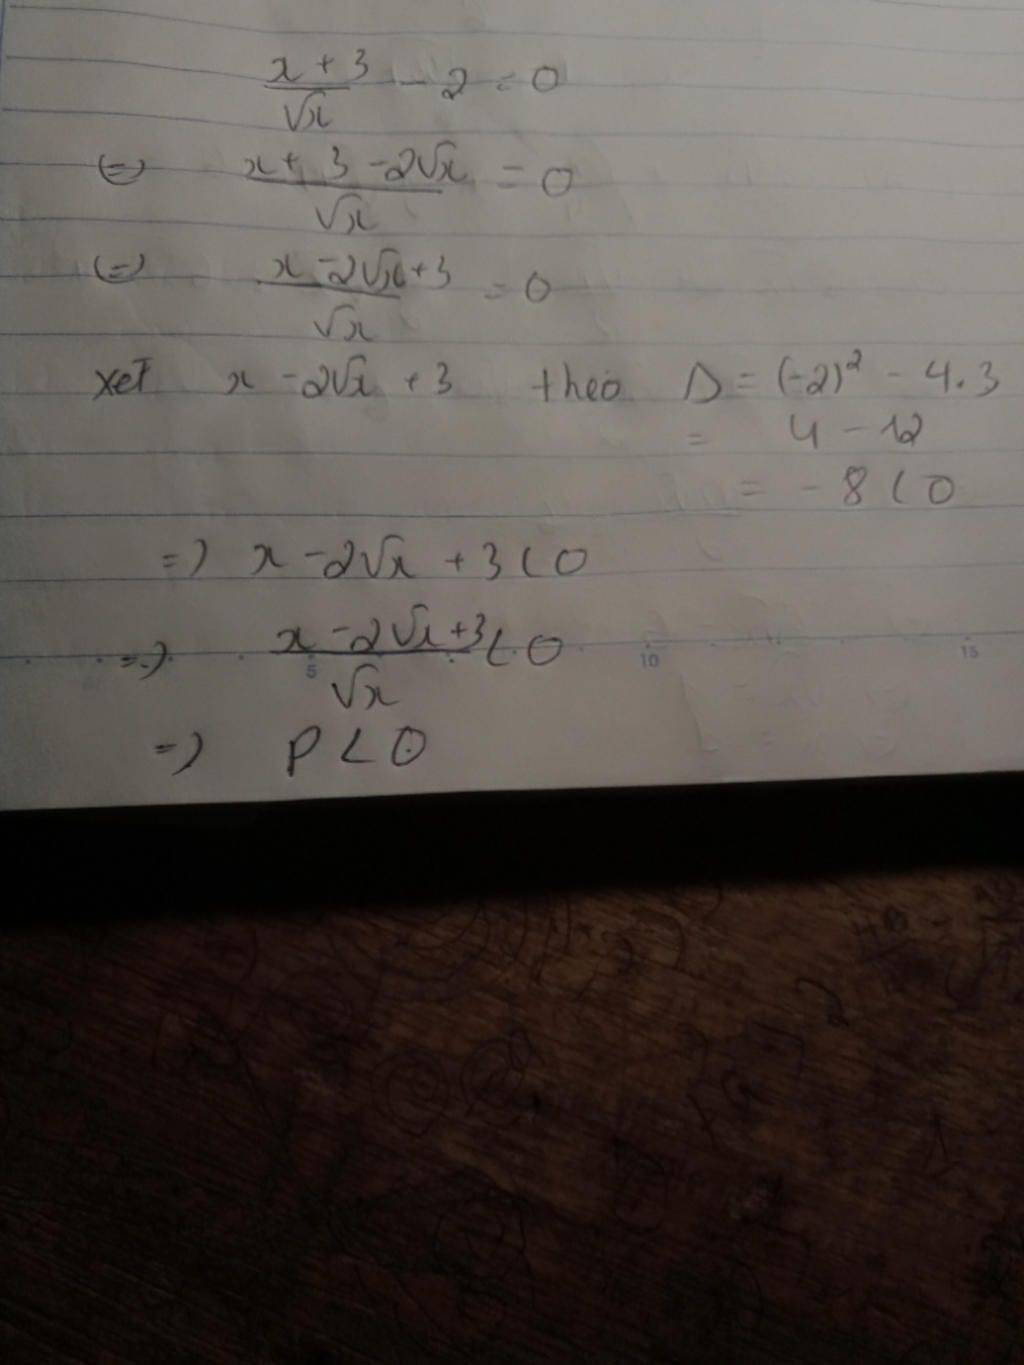 x + 3 / √x - 2 = 0
(=) x + 3 - 2√x / √x = 0
(=) x - 2√x + 3 / √x = 0
xet x - 2√x + 3 theo Δ = (-2)² - 4.3
= 4 - 12
= - 8 < 0
=) x - 2√x + 3 < 0
=) x - 2√x + 3 / √x < 0
5 10 15
=) P < 0